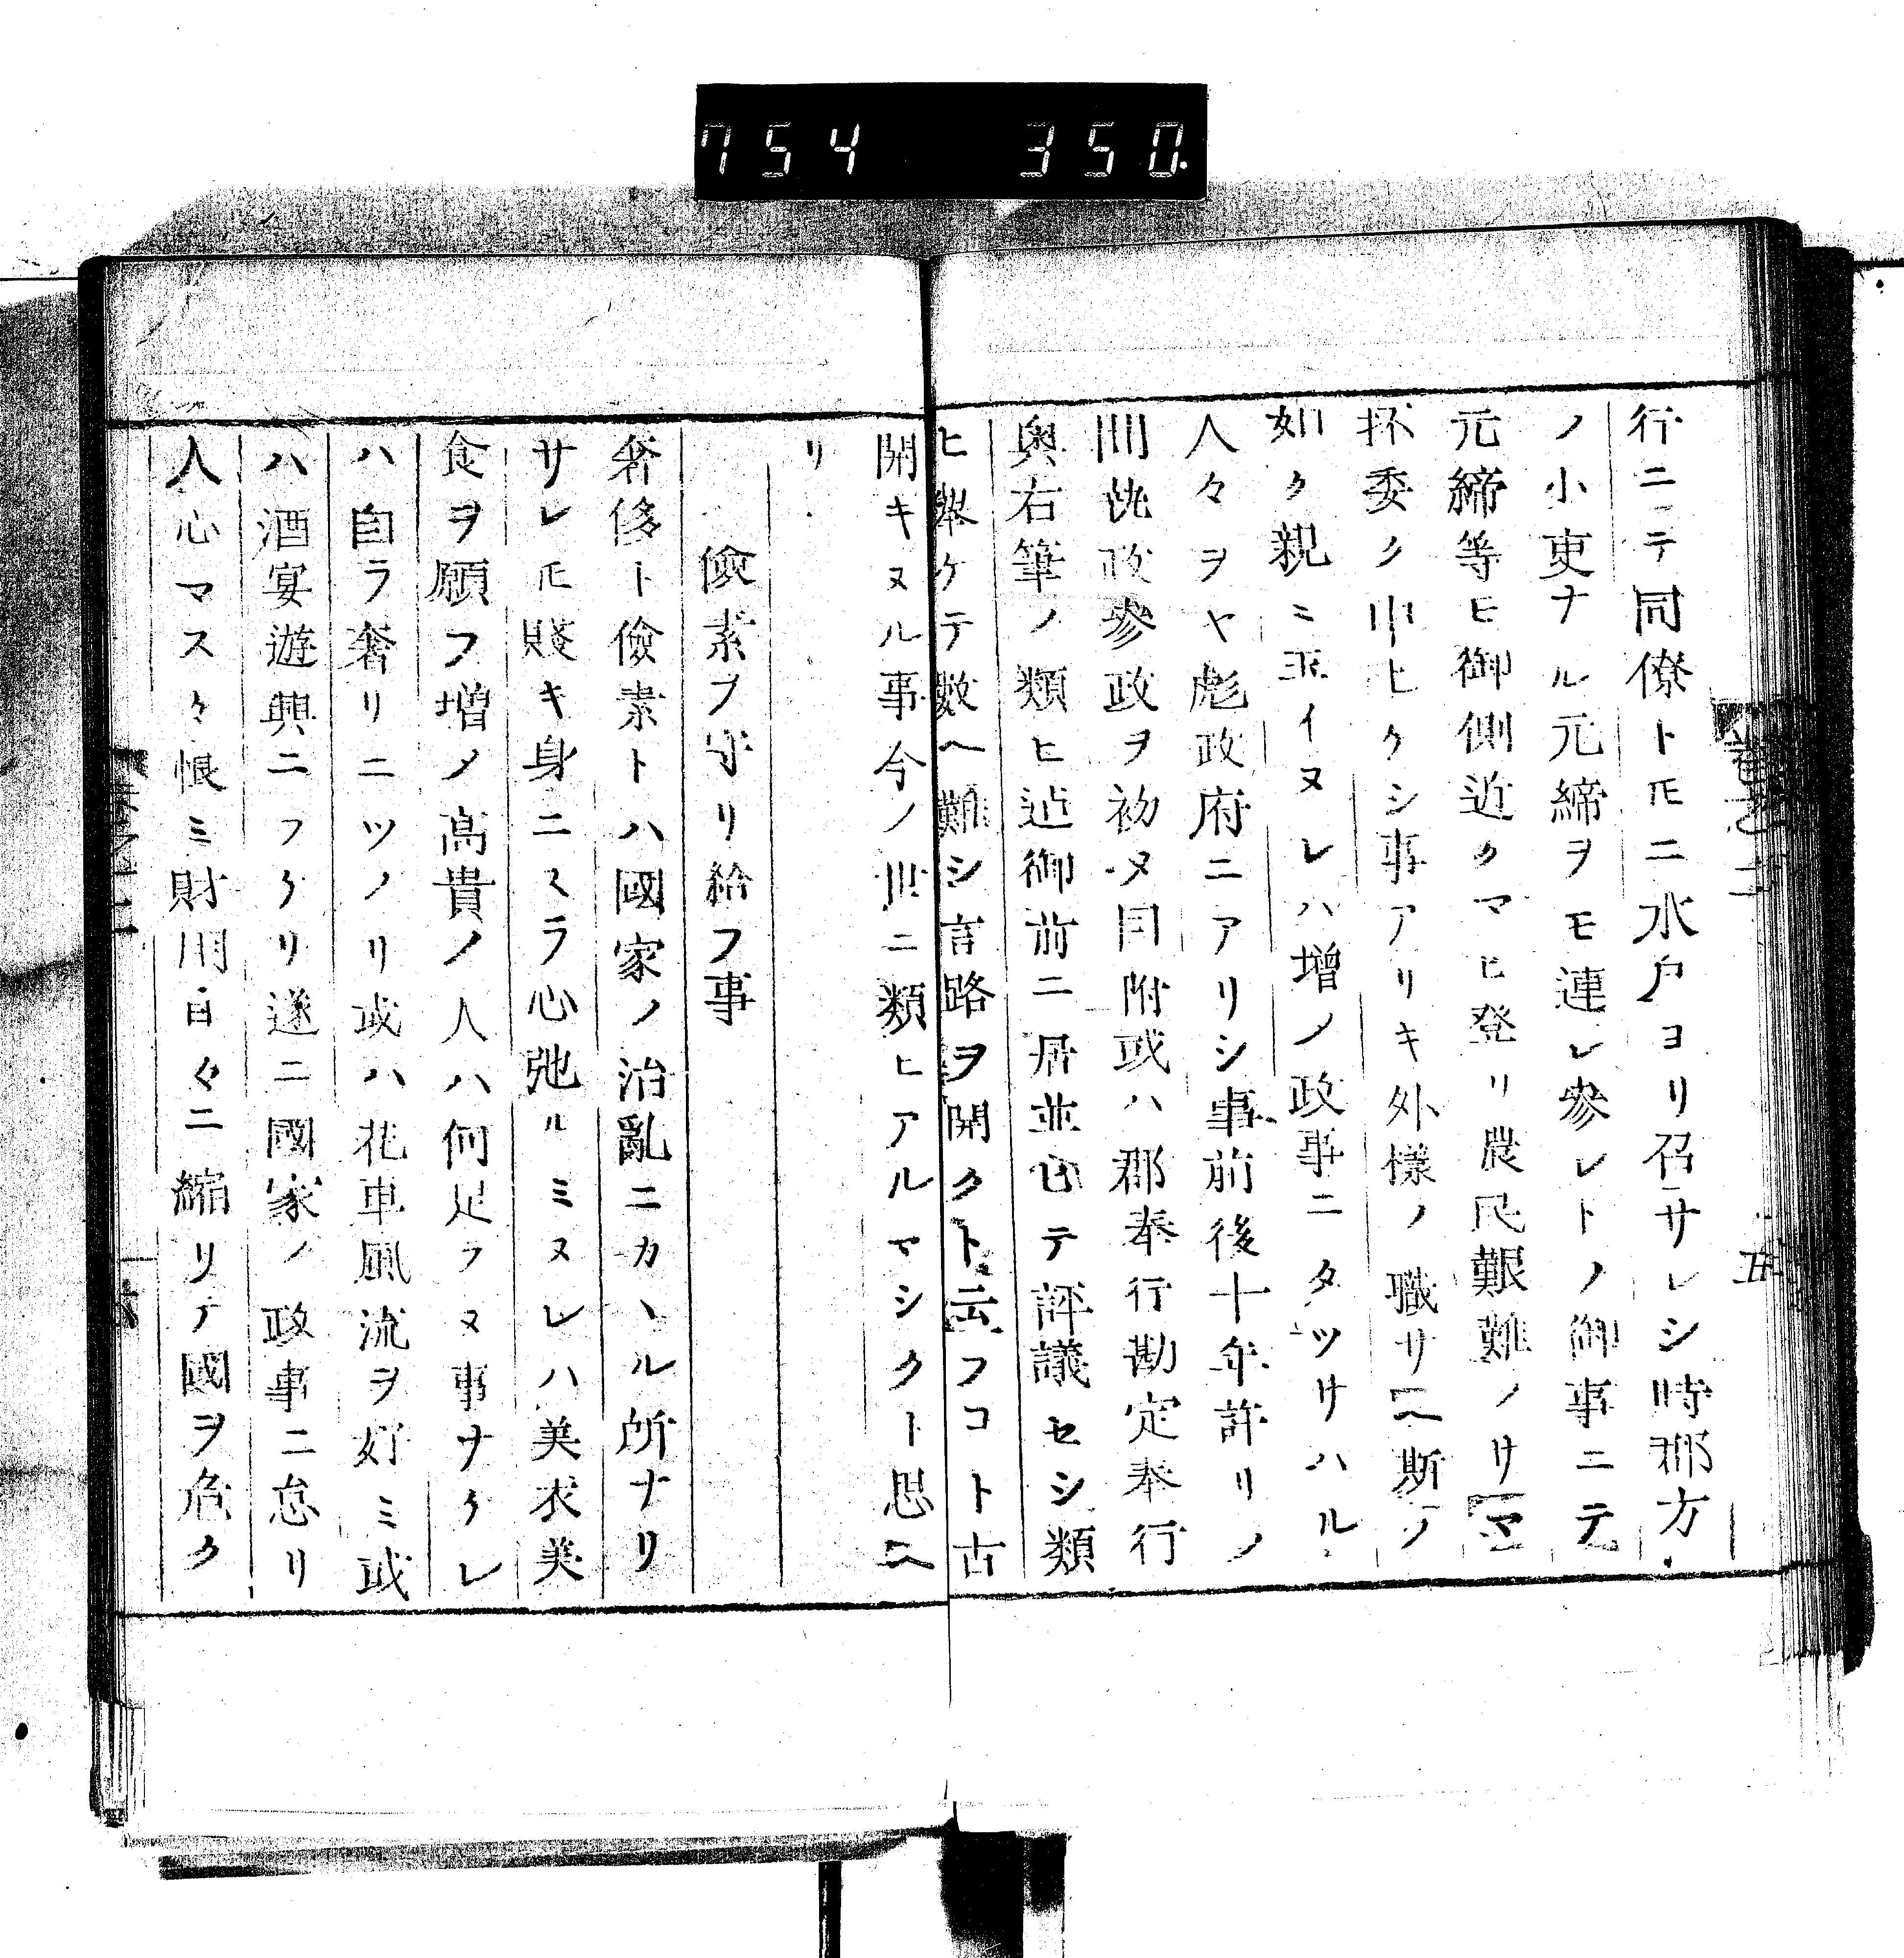 754 350
行ニテ同僚トモニ水戸ヨリ召サレシ時郡方
ノ小吏ナル元締ヲモ連レ参レトノ御事ニテ
元締等モ御側近クマヒ登リ農民艱難ノサマ
抔委ク申ヒケシ事アリキ外様ノ職サヘ斯ノ
如ク親ミ玉イヌレハ増ノ政事ニタツサハル
人々ヲヤ彪政府ニアリシ事前後十年許リノ
間執政参政ヲ初メ同附或ハ郡奉行勘定奉行
奥右筆ノ類ヒ迠御前ニ居並ヒテ評議セシ類
ヒ擧ケテ数ヘ難シ言路ヲ開クト云フコト古
開キヌル事今ノ世ニ類ヒアルマシクト思ヘ
リ
儉素ヲ守リ給フ事
奢侈ト儉素トハ國家ノ治亂ニカヽル所ナリ
サレ𪜈賤キ身ニスラ心弛ルミヌレハ美衣美
食ヲ願フ増メ高貴ノ人ハ何足ラヌ事ナクレ
ハ自ラ奢リニツノリ或ハ花車風流ヲ好ミ或
ハ酒宴遊興ニフケリ遂ニ國家ノ政事ニ怠リ
人心マスく恨ミ財用日々ニ縮リテ國ヲ危ク